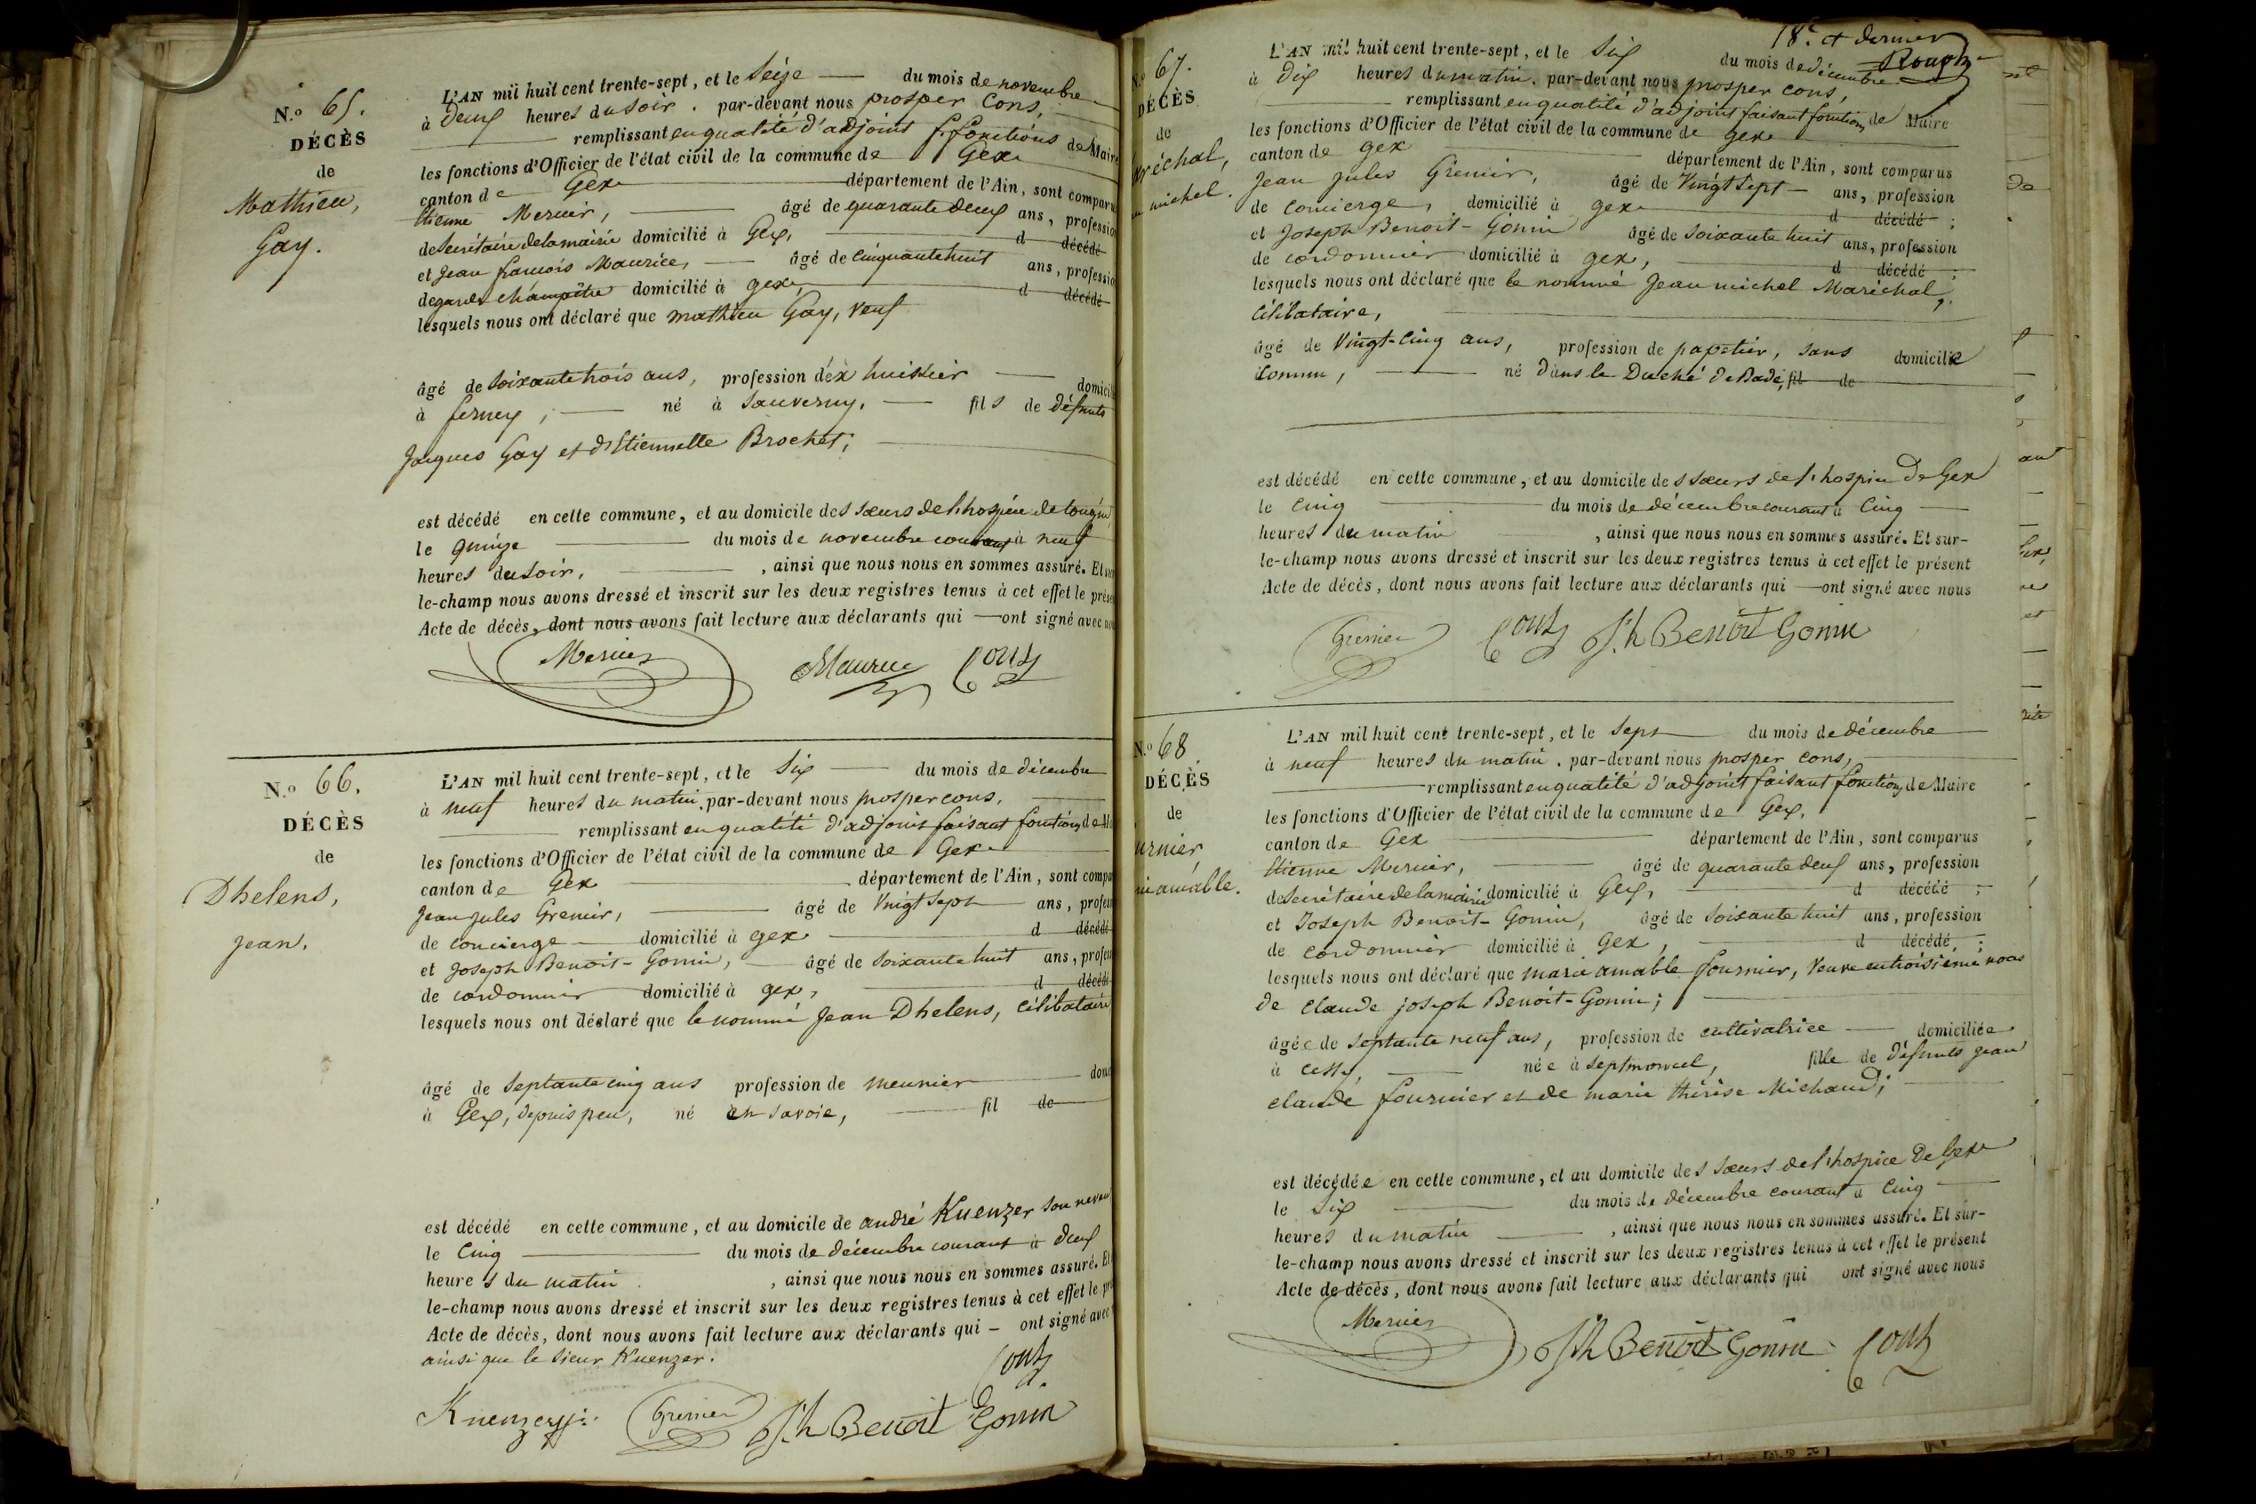 N.o 65.
DÉCÈS
de
Mathieu,
Gay.
L'AN mil huit cent trente-sept, et le Seize du mois de novembre
à deux heures du soir. par-devant nous prosper Cons,
remplissant en qualité d'adjoint f. fonctions de Maire
les fonctions d'Officier de l'état civil de la commune de Gex
canton de Gex département de l'Ain, sont comparus
Etienne Mernier, âgé de quarante deux ans, profession
de Secrétaire de la mairie domicilié à Gex, d décédé
et Jean francois Maurice, âgé de cinquante huit ans, profession
de garde champêtre domicilié à gex, d décédé
lesquels nous ont déclaré que mathieu Gay, veuf
âgé de soixante trois ans, profession d'ex huissier domicil
à ferney, né à Sauverny, fils de défunts
Jacques Gay et d'Etiennette Brochet;
est décédé en cette commune, et au domicile des sœurs de l'hospice de tougin,
le quinze du mois de novembre courant à neuf
heures du soir, , ainsi que nous nous en sommes assuré. Et
le-champ nous avons dressé et inscrit sur les deux registres tenus à cet effet le prése
Acte de décès, dont nous avons fait lecture aux déclarants qui ont signé avec nou
Mernier Maurice Cons
N.o 66.
DÉCÈS
de
Dhelens,
Jean.
L'AN mil huit cent trente-sept, et le Six du mois de décembre
à neuf heures du matin, par-devant nous prosper cons,
remplissant en qualité d'adjoint faisant fonctions de Ma
les fonctions d'Officier de l'état civil de la commune de Gex
canton de Gex département de l'Ain, sont compa
Jean jules Grenier, âgé de Vingt Sept ans, profess
de concierge domicilié à gex d décédé
et Joseph Benoit-Gonin, âgé de soixante huit ans, profess
de cordonnier domicilié à gex, d décédé
lesquels nous ont déclaré que le nommé Jean Dhelens, célibataire
âgé de septante cinq ans profession de meunier dom
à Gex, depuis peu, né en Savoie, fil de
est décédé en cette commune, et au domicile de andré Kuenzer son neveu
le Cinq du mois de décembre courant à deux
heures du matin , ainsi que nous nous en sommes assuré. Et
le-champ nous avons dressé et inscrit sur les deux registres tenus à cet effet le pré
Acte de décès, dont nous avons fait lecture aux déclarants qui – ont signé avec
ainsi que le Sieur Kuenzer.
Cons
Kuenzer Grenier Jh Benoit Gonin
18e et dernier
Rouph
N.o 67.
DÉCÈS
de
réchal,
michel.
L'AN mil huit cent trente-sept, et le Six du mois de décembre
à Dix heures du matin. par-devant nous prosper cons,
remplissant en qualité d'adjoint faisant fonctions de Maire
les fonctions d'Officier de l'état civil de la commune de gex
canton de gex département de l'Ain, sont comparus
Jean jules Grenier, âgé de Vingt Sept ans, profession
de concierge, domicilié à gex d décédé ;
et Joseph Benoit-Gonin âgé de soixante huit ans, profession
de cordonnier domicilié à gex, d décédé ;
lesquels nous ont déclaré que le nommé Jean michel Maréchal,
célibataire,
âgé de Vingt-cinq ans, profession de papetier, sans domicile
connu, né dans le Duché de Bade, fil de
est décédé en cette commune, et au domicile des sœurs de l'hospice de Gex
le cinq du mois de décembre courant à Cinq
heures du matin , ainsi que nous nous en sommes assuré. Et sur-
le-champ nous avons dressé et inscrit sur les deux registres tenus à cet effet le présent
Acte de décès, dont nous avons fait lecture aux déclarants qui ont signé avec nous
Grenier Cons Jh Benoit Gonin
N.o 68
DÉCÈS
de
urnier
amable.
L'AN mil huit cent trente-sept, et le Sept du mois de décembre
à neuf heures du matin. par-devant nous prosper cons,
remplissant en qualité d'adjoint faisant fonctions de Maire
les fonctions d'Officier de l'état civil de la commune de Gex,
canton de Gex département de l'Ain, sont comparus
Etienne Mernier, âgé de quarante deux ans, profession
de Secrétaire de la mairie domicilié à Gex, d décédé ;
et Joseph Benoit-Gonin, âgé de soixante huit ans, profession
de cordonnier domicilié à Gex, d décédé ;
lesquels nous ont déclaré que marie amable fournier, veuve en troisième noce
de claude joseph Benoit-Gonin;
âgée de septante neuf ans, profession de cultivatrice domiciliée
à cessy, née à septmoncel, fille de défunts jean
claude fournier et de marie thérèse Michaud;
est décédée en cette commune, et au domicile des sœurs de l'hospice de Gex
le Six du mois de décembre courant à Cinq
heures du matin , ainsi que nous nous en sommes assuré. Et sur-
le-champ nous avons dressé et inscrit sur les deux registres tenus à cet effet le présent
Acte de décès, dont nous avons fait lecture aux déclarants qui ont signé avec nous
Mernier Jh Benoit Gonin Cons